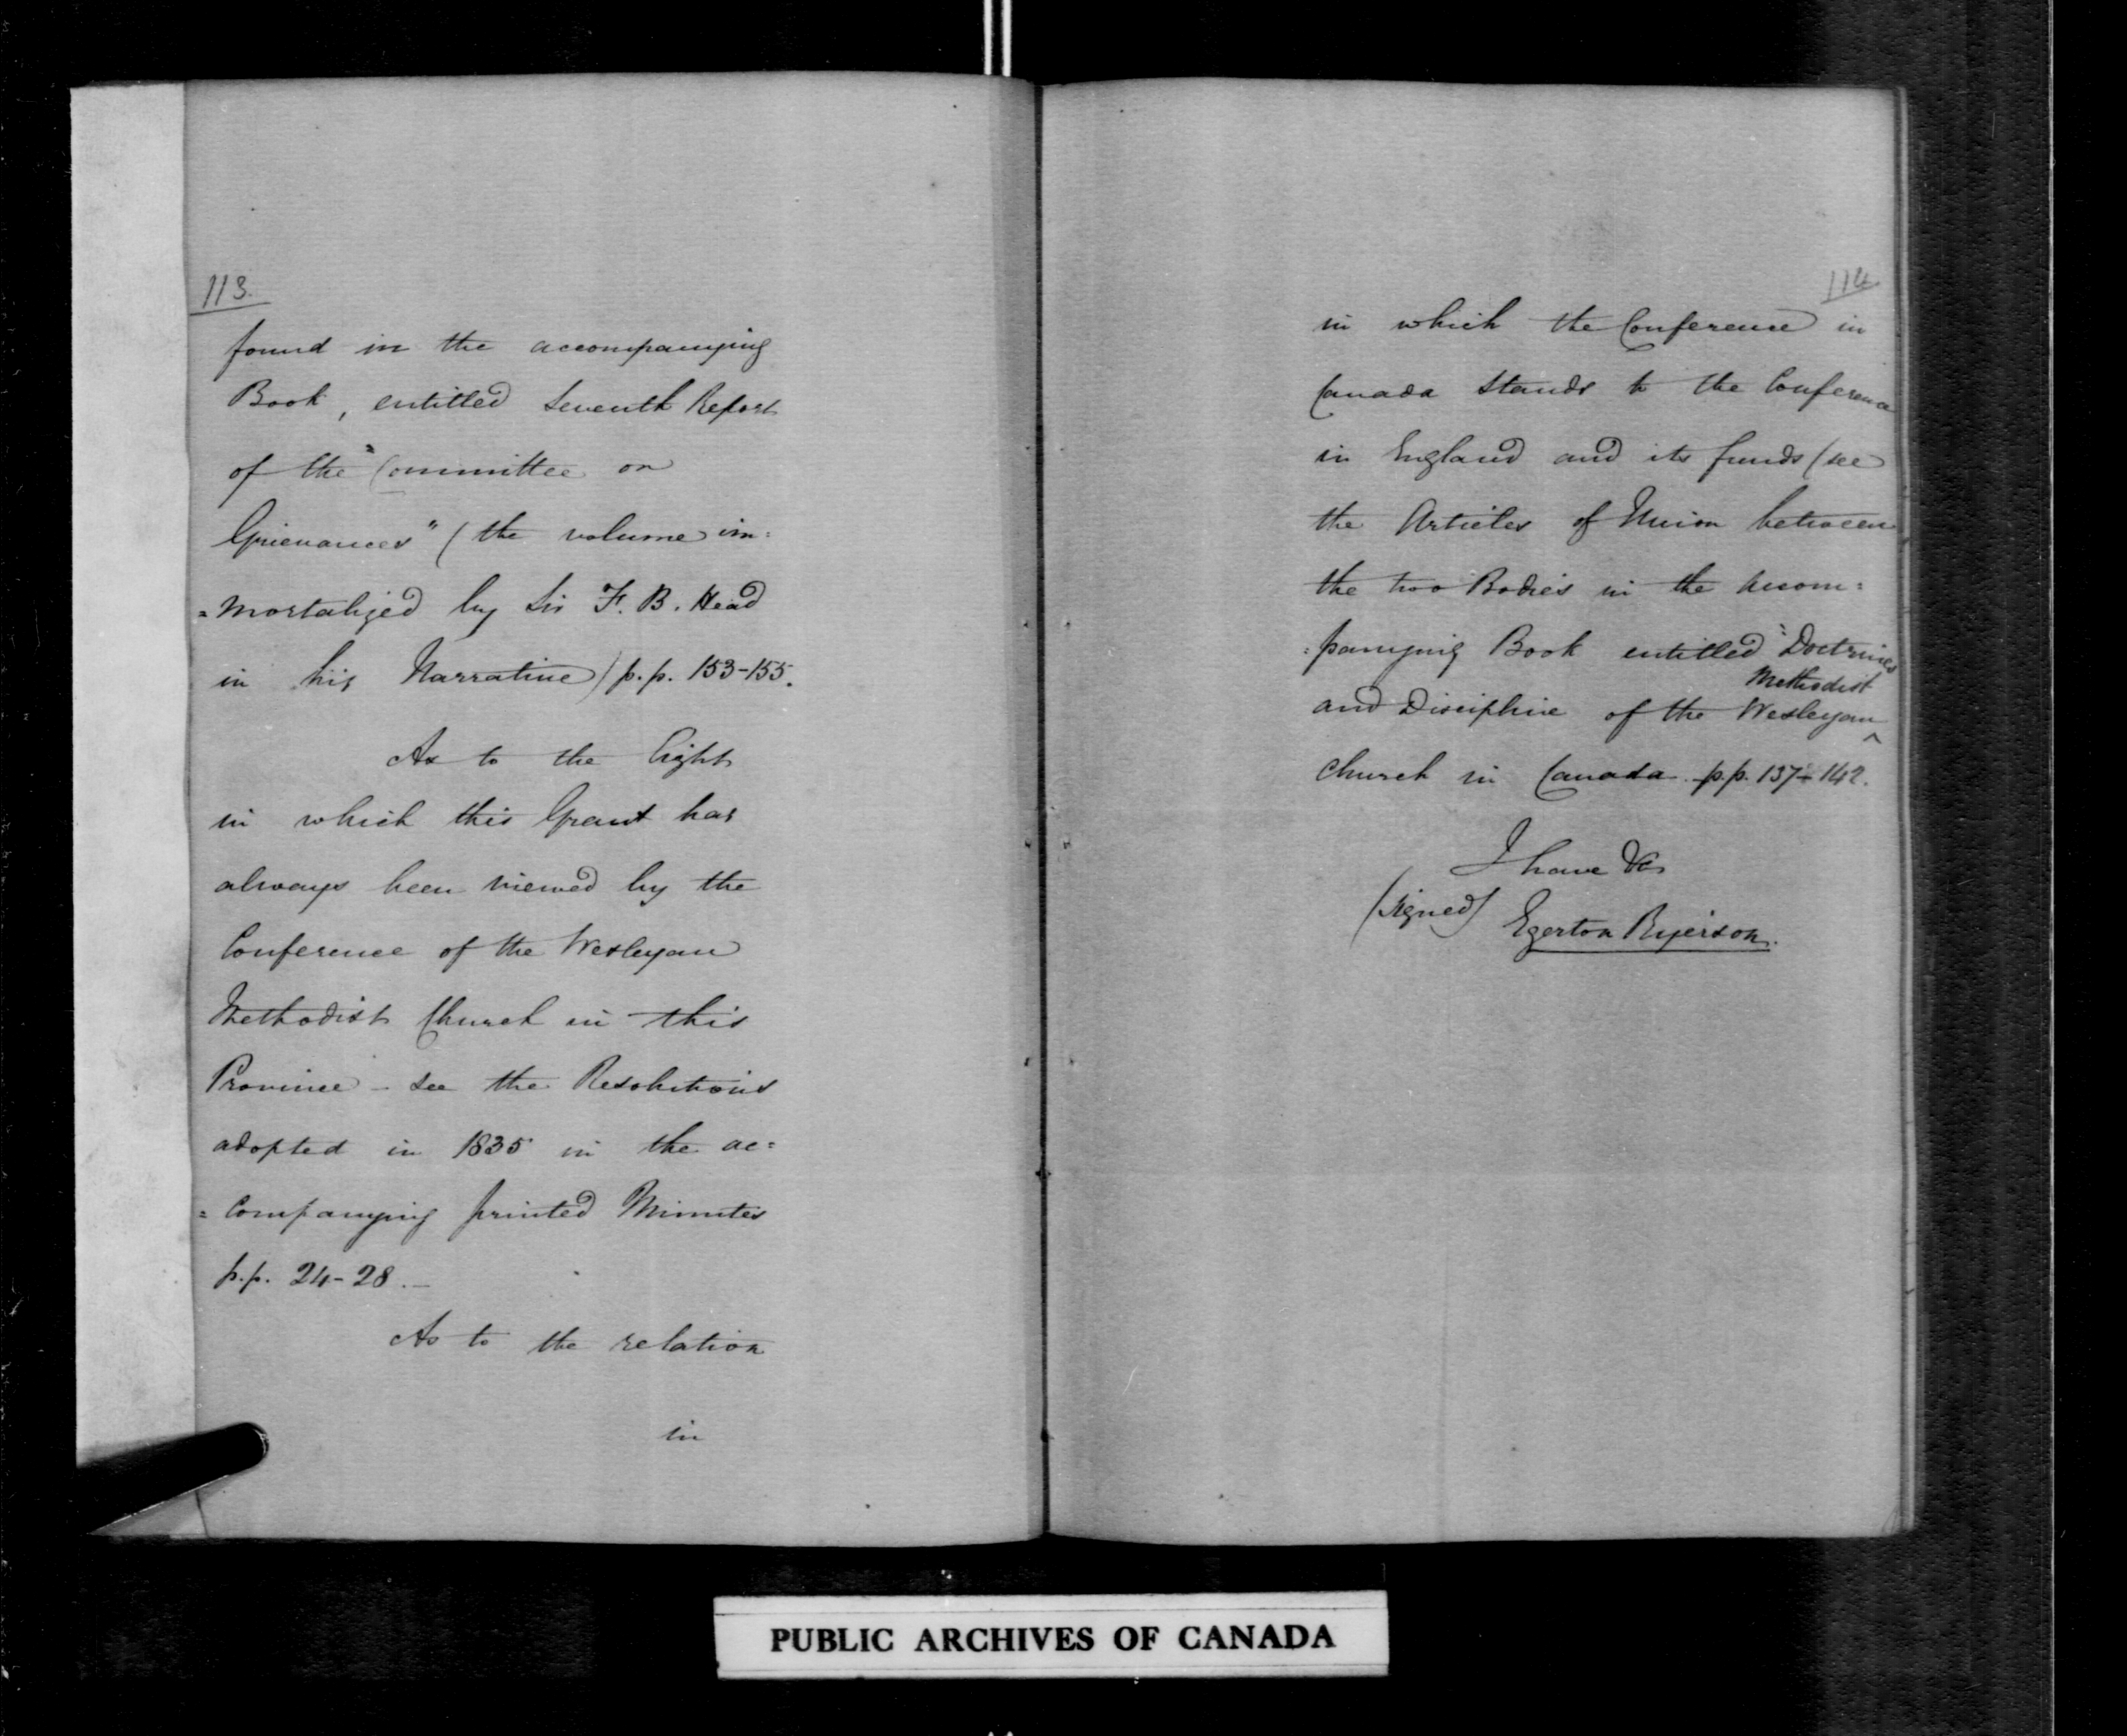 113.
found in the accompanying
Book, entitled Seventh Report
of the "Committee on
Grievances" (the volume im=
=mortalized by Sir F. B. Head
in his Narrative) p.p. 153-155.
As to the light
in which this Grant has
always been viewed by the
Conference of the Wesleyan
Methodist Church in this
Province - see the Resolutions
adopted in 1835 in the ac=
=companying printed Minutes
p.p. 24-28.-
As to the relation
in
114
in which the Conference in
Canada stands to the Conference
in England and its funds (see
the Articles of Union between
the two Bodies in the accom=
=panying Book entitled "Doctrines
Methodist
and Discipline of the Wesleyan ^
Church in Canada p.p. 137-142.
I have &c
(Signed) Egerton Ryerson.
PUBLIC ARCHIVES OF CANADA